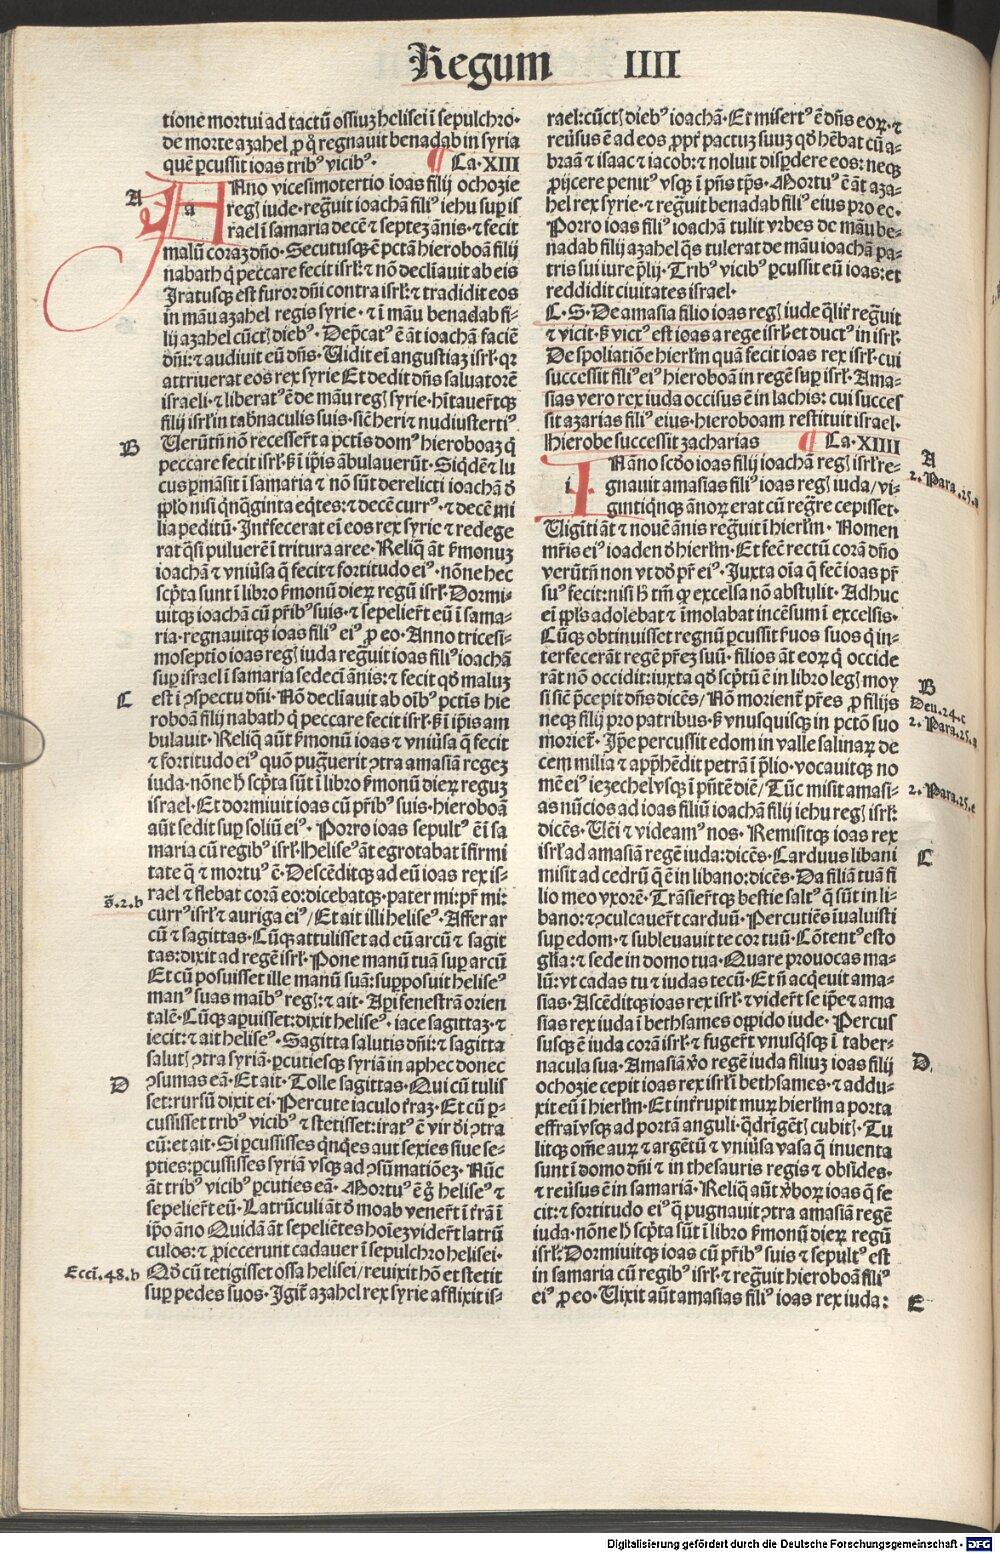 Regum IIII
tione mortui ad tactū ossiuz helisei ī sepulchro·
de morte azahel ꝓ q̊ regnauit benadab in syria
quē ꝑcussit ioas tribꝰ vicibꝰ· ¶ Ca·XIII
A
ANno vicesimotertio ioas filij ochozie
a
regꝭ iude·regͣuit ioachā filiꝰ iehu suꝑ is
rael ī samaria decē ⁊ septez ānis·⁊ fecit
malū coraz dn̄o·Secutusqꝫ ē pctā hieroboā filij
nabath q̇ peccare fecit isrl̓:⁊ nō decliauit ab eis
Iratusqꝫ est furor dn̄i contra isrl̓:⁊ tradidit eos
in māu azahel regis syrie·⁊ ī māu benadab fi-
lij azahel cūctꝭ diebꝰ·Dep̄catꝰ ē āt ioachā faciē
dn̄i:⁊ audiuit eū dn̄s·Uidit ei̇ angustiaz isrl̓·qꝛ
attriuerat eos rex syrie Et dedit dn̄s saluatorē
israeli·⁊ liberatꝰ ē de māu regꝭ syrie·hītauer̄tqꝫ
filij isrl̓ in tab̓naculis suis·sic̄ heri ⁊ nudiustertiꝰ
B
Uerūtn̄ nō recesser̄t a pctis domꝰ hieroboaz q̇
peccare fecit isrl̓·ß ī ip̄is ābulauerūt·Siqdē ⁊ lu
cus ꝑmāsit ī samaria ⁊ nō sūt derelicti ioachā d̓
pp̄lo nisi q̇nq̇ginta eq̇tes:⁊ decē currꝰ·⁊ decē mi
lia peditū·Int̄fecerat ei̇ eos rex syrie ⁊ redege
rat q̇si puluerē ī tritura aree·Reliq̇ āt ẜmonuz
ioachā ⁊ vniūsa q̄ fecit ⁊ fortitudo eiꝰ·nōne hec
scp̄ta sunt ī libro ẜmonū dieꝝ regū isrl̓·Dormi-
uitqꝫ ioachā cū pr̄ibꝰ suis·⁊ sepelier̄t eū ī sama-
ria·regnauitqꝫ ioas filiꝰ eiꝰ ꝓ eo·Anno tricesi-
moseptio ioas regꝭ iuda regͣuit ioas filiꝰ ioachā
suꝑ israel ī samaria sedeci ānis:⁊ fecit qd̓ maluz
C
est ī ꝯspectu dn̄i·Nō decliauit ab oībꝰ pctis hie
roboā filij nabath q̇ peccare fecit isrl̓·ß ī ip̄is am
bulauit·Reliq̇ aūt ẜmonū ioas ⁊ vniūsa q̄ fecit
⁊ fortitudo eiꝰ quō pugͣuerit ꝯtra amasiā regez
iuda·nōne h̄ scp̄ta sūt ī libro ẜmonū dieꝝ reguz
israel·Et dormiuit ioas cū pr̄ibꝰ suis·hieroboā
aūt sedit suꝑ soliū eiꝰ·Porro ioas sepultꝰ ē ī sa
maria cū regibꝰ isrl̓·Heliseꝰ āt egrotabat ī̇firmi
tate q̄ ⁊ mortuꝰ ē·Descēditqꝫ ad eū ioas rex is-
ẜ.2.b rael ⁊ flebat corā eo:dicebatqꝫ·pater mi:pr̄ mi:
currꝰ isrl̓ ⁊ auriga eiꝰ/Et ait illi heliseꝰ·Affer ar
cū ⁊ sagittas·Cūqꝫ attulisset ad eū arcū ⁊ sagit
tas:dixit ad regē isrl̓·Pone manū tuā suꝑ arcū
Et cū posuisset ille manū suā:supposuit heliseꝰ
manꝰ suas maībꝰ regꝭ:⁊ ait·Aꝑi fenestrā orien
talē·Cūqꝫ aꝑuisset:dixit heliseꝰ·iace sagittaz·⁊
iecit:⁊ ait heliseꝰ·Sagitta salutis dn̄i:⁊ sagitta
salutꝭ ꝯtra syriā·ꝑcutiesqꝫ syriā in aphec donec
D
ꝯsumas eā·Et ait·Tolle sagittas·Qui cū tulis
set:rursū dixit ei·Percute iaculo t̓raz·Et cū ꝑ-
cussisset tribꝰ vicibꝰ ⁊ stetisset:iratꝰ ē vir dī ꝯtra
eū:et ait·Si ꝑcussisses q̇nq̇es aut sexies siue se-
pties:ꝑcussisses syriā vsqꝫ ad ꝯsūmatiōez·Nūc
āt tribꝰ vicibꝰ ꝑcuties eā·Mortuꝰ ē g̊ heliseꝰ ⁊
sepelier̄t eū·Latrūculi āt d̓ moab vener̄t ī t̓rā ī
ip̄o āno Quidā āt sepeliētes hoīez vider̄t latrū
culos:⁊ ꝓiecerunt cadauer ī sepulchro helisei·
Eccī.48.b Qd̓ cū tetigisset ossa helisei/reuixit hō et stetit
suꝑ pedes suos·Igit̄ azahel rex syrie afflixit is-
rael:cūctꝭ diebꝰ ioachā·Et misertꝰ ē dn̄s eoꝝ·⁊
reūsus ē ad eos ꝓpt̓ pactuz suuz qd̓ hēbat cū a-
braā ⁊ isaac ⁊ iacob:⁊ noluit disꝑdere eos:neqꝫ
ꝓijcere penitꝰ vsqꝫ ī pn̄s tp̄s·Mortuꝰ ē āt aza-
hel rex syrie·⁊ regͣuit benadab filiꝰ eius pro eo·
Porro ioas filiꝰ ioachā tulit vrbes de māu be-
nadab filij azahel qͣs tulerat de māu ioachā pa-
tris sui iure p̄lij·Tribꝰ vicibꝰ ꝑcussit eū ioas:et
reddidit ciuitates israel·
C·S·De amasia filio ioas regꝭ iude qͣlit̓ regͣuit
⁊ vicit·ß victꝰ est ioas a rege isrl̓·et ductꝰ in isrl̓·
De spoliatiōe hierlm̄ quā fecit ioas rex isrl̓·cui
successit filiꝰ eiꝰ hieroboā in regē suꝑ isrl̓·Ama-
sias vero rex iuda occisus ē in lachis: cui succes
sit azarias filiꝰ eius·hieroboam restituit israel·
Hierobe successit zacharias ¶ Ca·XIIII
A
2.Para.25.a
INāno scd̓o ioas filij ioachā regꝭ isrl̓ re-
i
gnauit amasias filiꝰ ioas regꝭ iuda/vi-
gintiq̇nqꝫ ānoꝝ erat cū regͣre cepisset·
Uigīti āt ⁊ nouē ānis regͣuit ī hierlm̄·Nomen
mr̄is eiꝰ ioaden d̓ hierlm̄·Et fec̄ rectū corā dn̄o
verūtn̄ non vt dd̓ pr̄ eiꝰ·Juxta oīa q̄ fec̄ ioas pr̄
suꝰ fecit:nisi h̄ tm̄ ꝙ excelsa nō abstulit·Adhuc
ei̇ pp̄ls adolebat ⁊ īmolabat incēsum ī excelsis·
Cūqꝫ obtinuisset regnū ꝑcussit ẜuos suos q̇ in-
terfecerāt regē pr̄ez suū·filios āt eoꝝ q̇ occide
rāt nō occidit:iuxta qd̓ scp̄tū ē in libro legꝭ moy
B
Deu.24.c
2.Para.25.a
si sic̄ p̄cepit dn̄s dicēs/Nō morient̄ pr̄es ꝓ filijs
neqꝫ filij pro patribus·ß vnusquisqꝫ in pctō suo
moriet̄·Ip̄e percussit edom in valle salinaꝝ de
cem milia ⁊ app̄hēdit petrā ī p̄lio·vocauitqꝫ no
mē eiꝰ iezechel vsqꝫ ī pn̄tē diē/Tūc misit amasi-
2.Para.25.e
as nūcios ad ioas filiū ioachā filij iehu regꝭ isrl̓:
dicēs·Uēi ⁊ videamꝰ nos·Remisitqꝫ ioas rex
C
isrl̓ ad amasiā regē iuda:dicēs·Carduus libani
misit ad cedrū q̄ ē in libano:dicēs·Da filiā tuā fi
lio meo vxorē·Trāsier̄tqꝫ bestie saltꝰ q̄ sūt in li-
bano:⁊ ꝯculcauer̄t carduū·Percutiēs īualuisti
suꝑ edom·⁊ subleuauit te cor tuū·Cōtentꝰ esto
gl̓ia:⁊ sede in domo tua·Quare prouocas ma-
lū:vt cadas tu ⁊ iudas tecū·Et n̄ acq̇euit ama-
sias·Ascēditqꝫ ioas rex isrl̓·⁊ vider̄t se ip̄e ⁊ ama
sias rex iuda ī bethsames oppido iude·Percus
susqꝫ ē iuda corā isrl̓·⁊ fuger̄t vnusq̇sqꝫ ī taber-
D.
nacula sua·Amasiā v̓o regē iuda filiuz ioas filij
ochozie cepit ioas rex isrl̓ ī bethsames·⁊ addu-
xit eū ī hierlm̄·Et int̓rupit muꝝ hierlm̄ a porta
effraī vsqꝫ ad portā anguli·q̇drīgētꝭ cubitꝭ·Tu
litqꝫ om̄e auꝝ ⁊ argētū ⁊ vniūsa vasa q̄ inuenta
sunt ī domo dn̄i ⁊ in thesauris regis ⁊ obsides·
⁊ reūsus ē in samariā·Reliq̇ aūt v̓boꝝ ioas q̄ fe
cit:⁊ fortitudo eiꝰ q̄ pugnauit ꝯtra amasiā regē
iuda·nōne h̄ scp̄ta sūt ī libro ẜmonū dieꝝ regū
isrl̓ Dormiuitqꝫ ioas cū pr̄ibꝰ suis ⁊ sepultꝰ est
in samaria cū regibꝰ isrl̓·⁊ regͣuit hieroboā filiꝰ
eiꝰ ꝓ eo·Uixit aūt amasias filiꝰ ioas rex iuda:
E
Digitalisierung gefördert durch die Deutsche Forschungsgemeinschaft - DFG